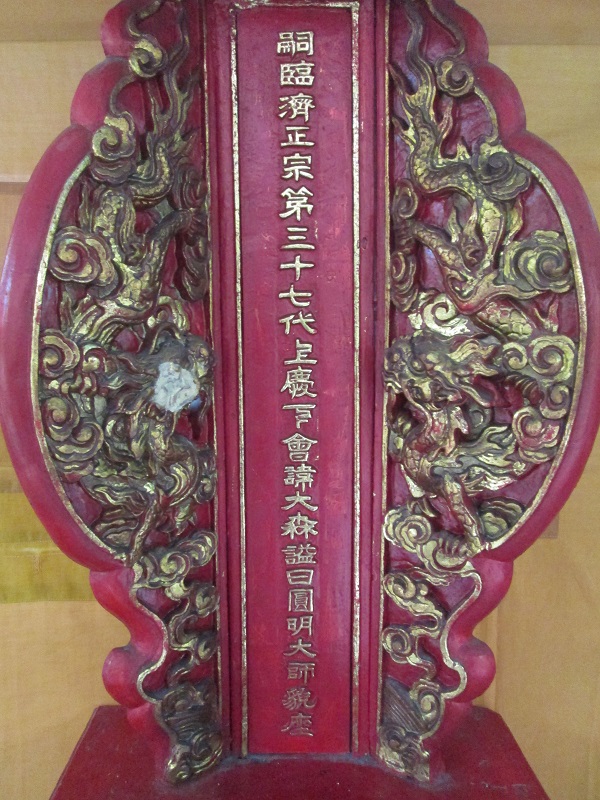 嗣臨濟正宗第三十七代上慶下會諱大森謚曰圓明大師藐座